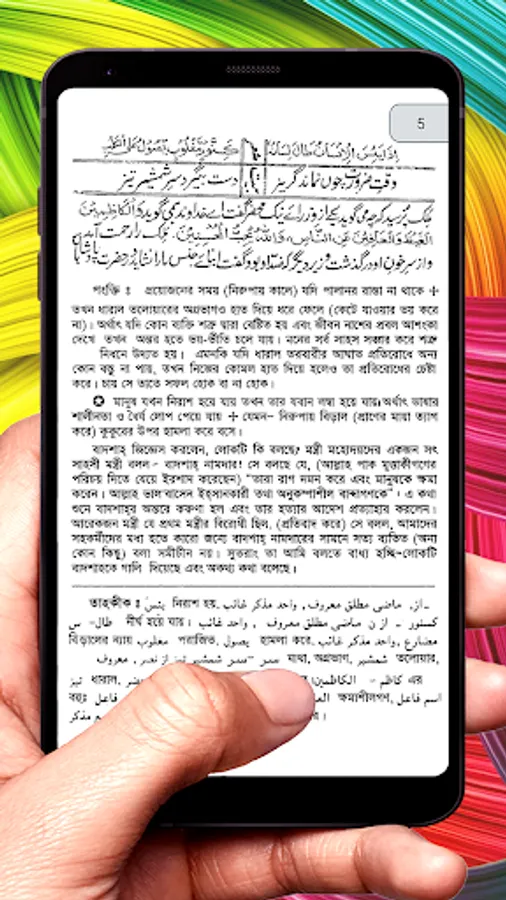 5
اِذَا يَئِسَ الْاِنْسَانُ طَالَ لِسَانُهٗ كَسِنَّوْرٍ مَّغْلُوْبٍ يَّصُوْلُ عَلَى الْكَلْبِ
وقتِ ضرورت چوں نماند گریز دست بگیرد سرِ شمشیرِ تیز
ملک پرسید کہ چہ می گوید یکے از وزرائے نیک محضر گفت اے خداوند می گوید وَالْكَاظِمِيْنَ
الْغَيْظَ وَالْعَافِيْنَ عَنِ النَّاسِ، وَاللّٰهُ يُحِبُّ الْمُحْسِنِيْنَ ملک را رحمت آمد
و از سر خون او در گذشت و وزیر دیگر کہ ضد او بود گفت ابنائے جنس ما را نشاید در حضرت پادشاہاں
পংক্তি : প্রয়োজনের সময় (নিরুপায় কালে) যদি পালানর রাস্তা না থাকে +
তখন ধারাল তলোয়ারের অগ্রভাগও হাত দিয়ে ধরে ফেলে (কেটে যাওয়ার ভয় করে
না)। অর্থাৎ যদি কোন ব্যক্তি শত্রু দ্বারা বেষ্টিত হয় এবং জীবন নাশের প্রবল আশংকা
দেখে তখন অন্তর হতে ভয়-ভীতি চলে যায়। মনের সর্ব সাহস সঞ্চার করে শত্রু
নিধনে উদ্যত হয়। এমনকি যদি ধারাল তরবারীর আঘাত প্রতিরোধে অন্য
কোন বস্তু না পায়, তখন নিজের কোমল হাত দিয়ে হলেও তা প্রতিরোধের চেষ্টা
করে। চায় সে তাতে সফল হোক বা না হোক।
✪ মানুষ যখন নিরাশ হয়ে যায় তখন তার যবান লম্বা হয়ে যায়।অর্থাৎ ভাষার
শালীনতা ও ধৈর্য লোপ পেয়ে যায় + যেমন- নিরুপায় বিড়াল (প্রাণের মায়া ত্যাগ
করে) কুকুরের উপর হামলা করে বসে।
বাদশাহ্ জিজ্ঞেস করলেন, লোকটি কি বলছে? মন্ত্রী মহোদয়দের একজন সৎ
সাহসী মন্ত্রী বলল- বাদশাহ্ নামদার! সে বলছে যে, (আল্লাহ পাক মুত্তাকীগণের
পরিচয় দিতে যেয়ে ইরশাদ করেছেন) "তারা রাগ দমন করে এবং মানুষকে ক্ষমা
করেন। আল্লাহ্ ভাল বাসেন ইহ্সানকারী তথা অনুকম্পাশীল বান্দাগণকে"। এ কথা
শুনে বাদশাহ্‌র অন্তরে করুণা হল এবং তার হত্যার আদেশ প্রত্যাহার করলেন।
আরেকজন মন্ত্রী যে প্রথম মন্ত্রীর বিরোধী ছিল, (প্রতিবাদ করে) সে বলল, আমাদের
সহকর্মীদের মধ্য হতে কারো জন্যে বাদশাহ্ নামদারের সামনে সত্য ব্যতিত (অন্য
কোন কিছু) বলা সমীচীন নয়। সুতরাং তা আমি বলতে বাধ্য হচ্ছি-লোকটি
বাদশাহকে গালি দিয়েছে এবং অকথ্য কথা বলেছে।
তাহকীক : يئس নিরাশ হয়. از، ماضی مطلق معروف، واحد مذکر غائب-
س -طال দীর্ঘ হয়ে যায়। از ن ماضی مطلق معروف، واحد مذکر غائب. کسنور
বিড়ালের ন্যায় مغلوب পরাজিত, یصول হামলা করে. مضارع، واحد مذکر غائب
معروف، از نصر، تیز سر شمشیر -سر মাথা, অগ্রভাগ, شمشیر তলোয়ার,
تیز ধারাল, الکاظمین: - کاظم এর
বহুঃ فاعل ক্ষমাশীলগণ, اسم فاعل،